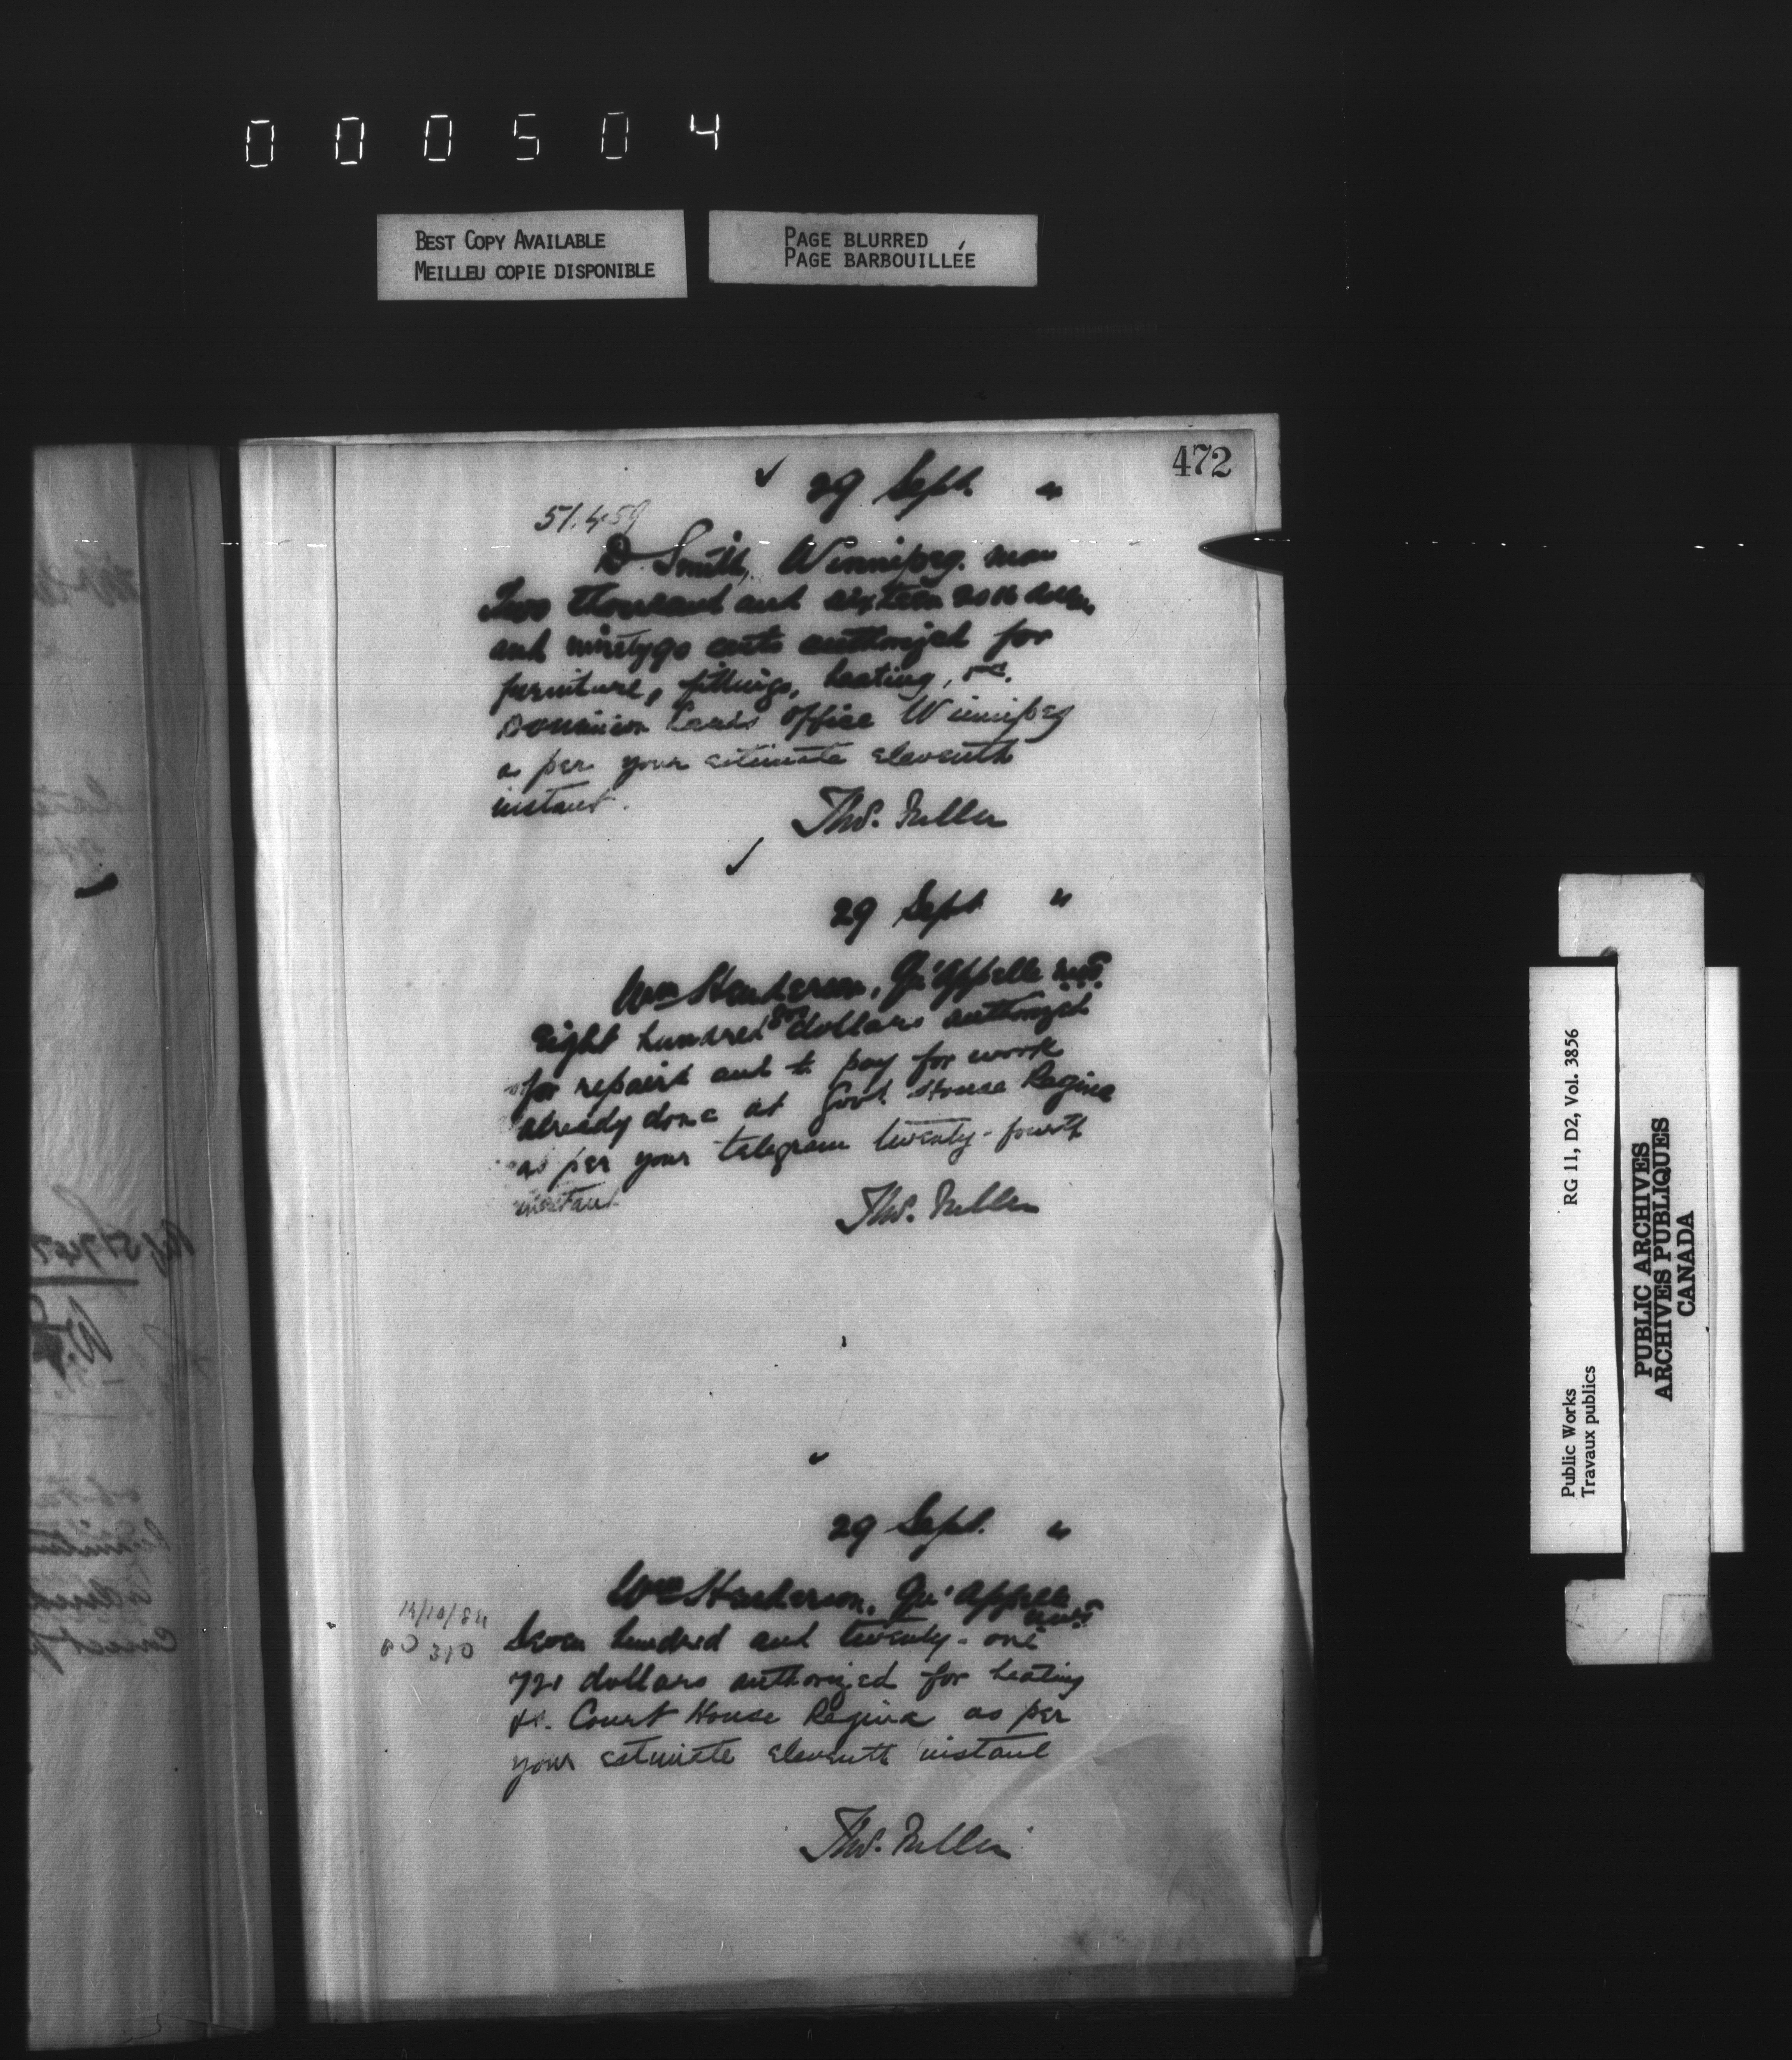 000504
BEST COPY AVAILABLE
MEILLEU COPIE DISPONIBLE
PAGE BLURRED
PAGE BARBOUILLÉE
472
29 Sept. "
51.459
D. Smith, Winnipeg. Man
Two thousand and sixteen 2016 dollars
and ninety 90 cents authorized for
furniture, fittings, heating, &c.
Dominion Lands Office Winnipeg
as per your estimate eleventh
instant.
Thos. Fuller
29 Sept. "
Wm Henderson, Qu'Appelle N.W.T.
Eight hundred 800 dollars authorized
for repairs and to pay for work
already done at Govt House Regina
as per your telegram twenty-fourth
instant.
Thos. Fuller
29 Sept. "
Wm Henderson, Qu'Appelle
N.W.T.
Seven hundred and twenty-one
721 dollars authorized for heating
&c. Court House Regina as per
your estimate eleventh instant
Thos. Fuller
Public Works
Travaux publics
RG 11, D2, Vol. 3856
PUBLIC ARCHIVES
ARCHIVES PUBLIQUES
CANADA